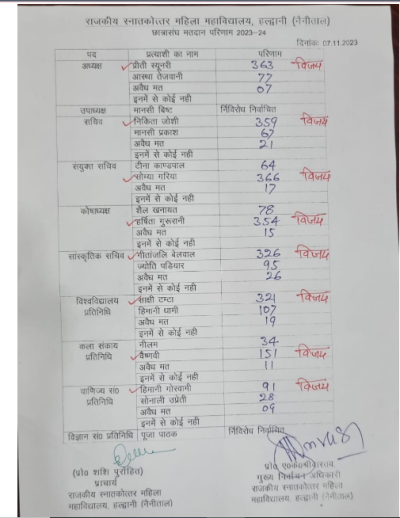 राजकीय स्नातकोत्तर महिला महाविद्यालय, हल्द्वानी (नैनीताल)
छात्रासंघ मतदान परिणाम 2023-24
दिनांकः 07.11.2023
पद प्रत्याशी का नाम परिणाम
अध्यक्ष प्रीती स्यूनरी 363 विजय
आस्था तेजवानी 77
अवैध मत 07
इनमें से कोई नही
उपाध्यक्ष मानसी बिष्ट र्निविरोध निर्वाचित
सचिव निकिता जोशी 359 विजय
मानसी प्रकाश 67
अवैध मत 21
इनमें से कोई नही
संयुक्त सचिव टीना काण्डपाल 64
सोम्या गरिया 366 विजय
अवैध मत 17
इनमें से कोई नही
कोषाध्यक्ष शैल खनायत 78
हर्षिता गुरूरानी 354 विजय
अवैध मत 15
इनमें से कोई नही
सांस्कृतिक सचिव गीतांजलि बेलवाल 326 विजय
ज्योति पडियार 95
अवैध मत 26
इनमें से कोई नही
विश्वविद्यालय साक्षी टम्टा 321 विजय
प्रतिनिधि हिमानी धामी 107
अवैध मत 19
इनमें से कोई नही
कला संकाय नीलम 34
प्रतिनिधि वैष्णवी 151 विजय
अवैध मत 11
इनमें से कोई नही
वाणिज्य सं0 हिमानी गोस्वामी 91 विजय
प्रतिनिधि सोनाली उप्रेती 28
अवैध मत 09
इनमें से कोई नही
विज्ञान सं0 प्रतिनिधि पूजा पाठक र्निविरोध निर्वाचित
(प्रो0 शशि पुरोहित)
प्राचार्य
राजकीय स्नातकोत्तर महिला
महाविद्यालय, हल्द्वानी (नैनीताल)
प्रो0 श्रीवास्तव
मुख्य निर्वाचन अधिकारी
राजकीय स्नातकोत्तर महिला
महाविद्यालय, हल्द्वानी (नैनीताल)